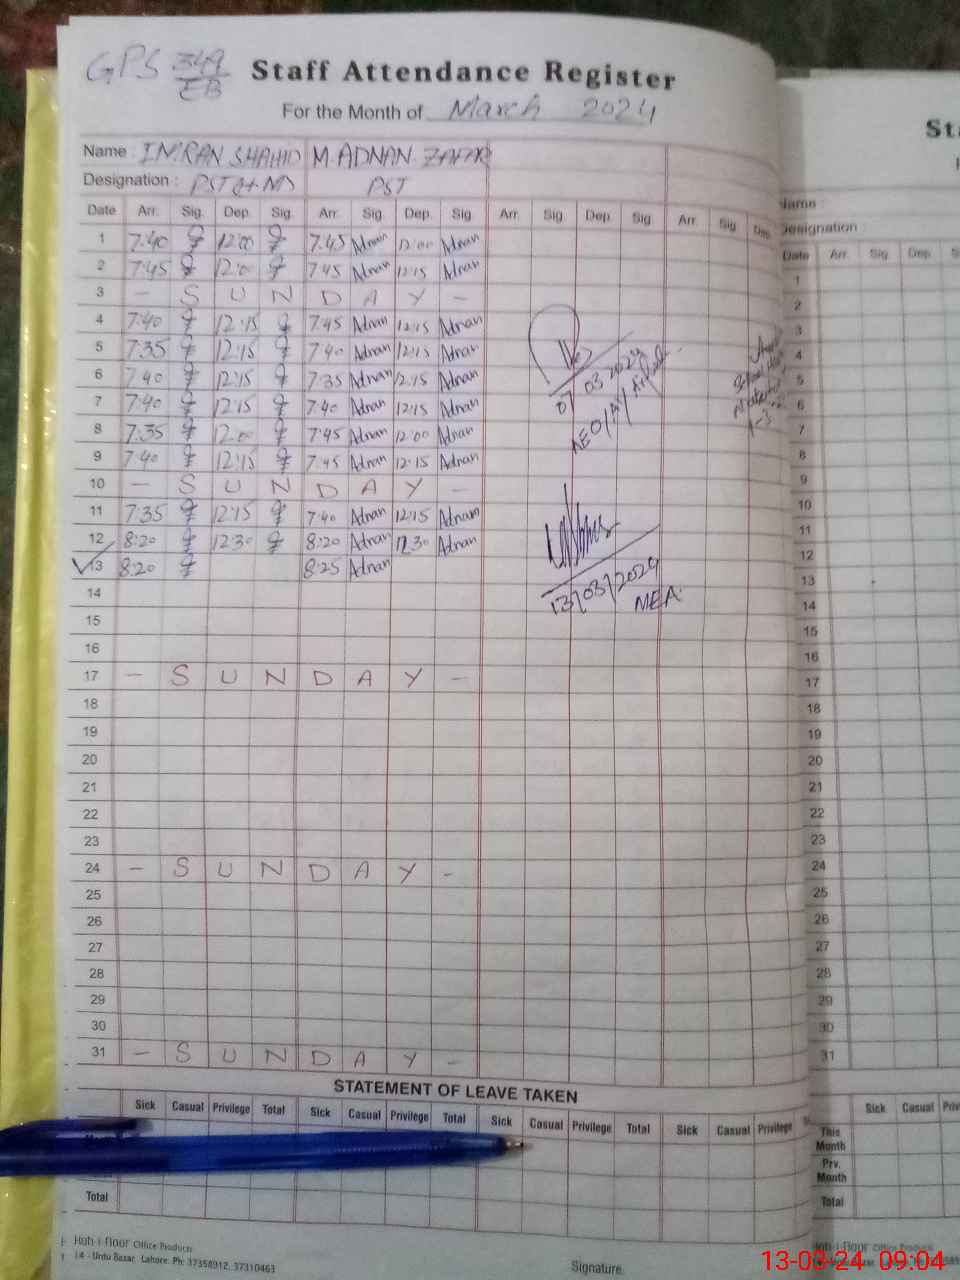 GPS 349/EB Staff Attendance Register
For the Month of March 2024
Name : IMRAN SHAHID M. ADNAN ZAFAR
Designation : PST (H.M) PST
Date Arr. Sig. Dep. Sig. Arr. Sig. Dep. Sig. Arr. Sig Dep. Sig Arr. Sig. Dep.
1 7:40 12:00 7:45 Adnan 12:00 Adnan
2 7:45 12:00 7:45 Adnan 12:15 Adnan
3 - S U N D A Y -
4 7:40 12:15 7:45 Adnan 12:15 Adnan
5 7:35 12:15 7:40 Adnan 12:15 Adnan
6 7:40 12:15 7:35 Adnan 12:15 Adnan
07 03 2024
AEO/
7 7:40 12:15 7:40 Adnan 12:15 Adnan
8 7:35 12:00 7:45 Adnan 12:00 Adnan
9 7:40 12:15 7:45 Adnan 12:15 Adnan
10 - S U N D A Y -
11 7:35 12:15 7:40 Adnan 12:15 Adnan
12 8:20 12:30 8:20 Adnan 12:30 Adnan
13 8:20 8:25 Adnan
13/03/2024
MEA
14
15
16
17 - S U N D A Y -
18
19
20
21
22
23
24 - S U N D A Y -
25
26
27
28
29
30
31 - S U N D A Y -
STATEMENT OF LEAVE TAKEN
Sick Casual Privilege Total Sick Casual Privilege Total Sick Casual Privilege Total Sick Casual Privilege
Total
Office Products
14 - Urdu Bazar, Lahore. Ph: 37358912, 37310463
Signature.
Designation
Date Arr. Sig. Dep.
1
2
3
4
5
6
7
8
9
10
11
12
13
14
15
16
17
18
19
20
21
22
23
24
25
26
27
28
29
30
31
Sick Casual
This Month
Prv. Month
Total
13-03-24 09:04